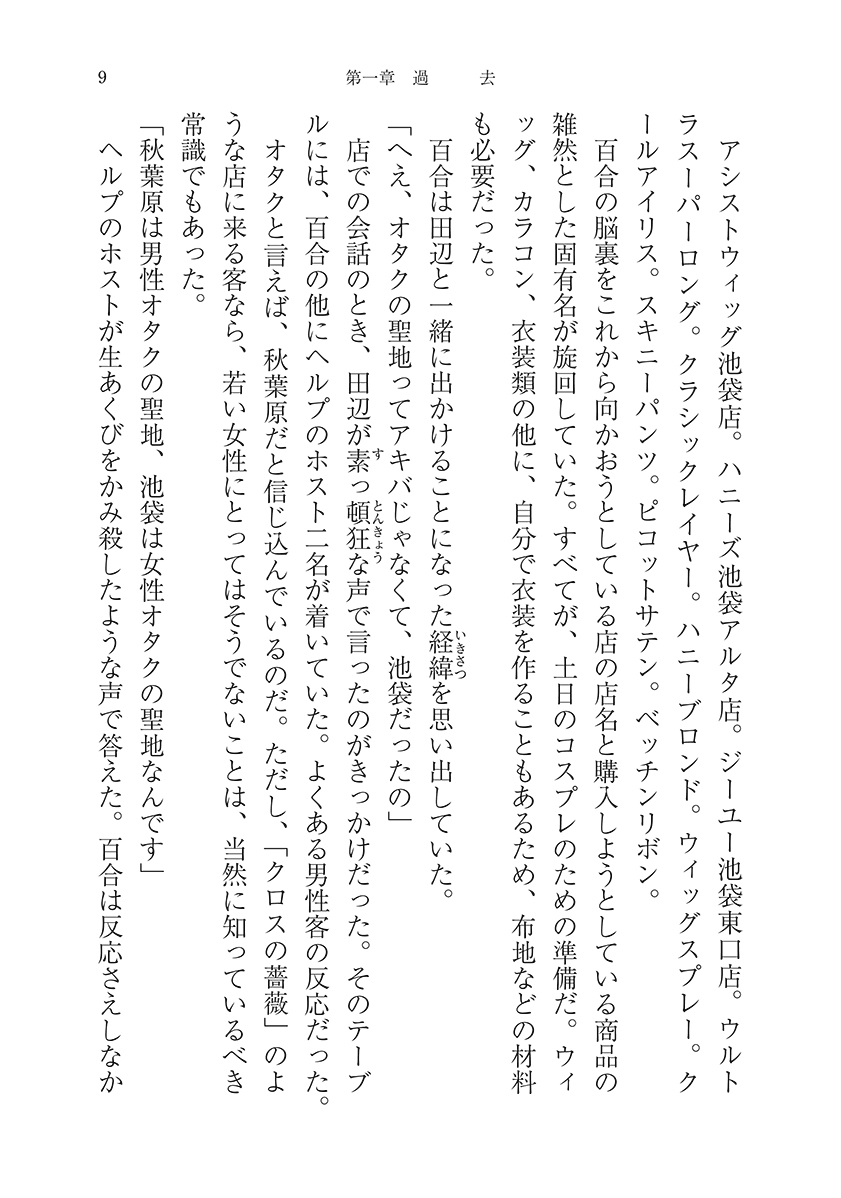 9
第一章　過　　去
　アシストウィッグ池袋店。ハニーズ池袋アルタ店。ジーユー池袋東口店。ウルト
ラスーパーロング。クラシックレイヤー。ハニーブロンド。ウィッグスプレー。ク
ールアイリス。スキニーパンツ。ピコットサテン。ベッチンリボン。
　百合の脳裏をこれから向かおうとしている店の店名と購入しようとしている商品の
雑然とした固有名が旋回していた。すべてが、土日のコスプレのための準備だ。ウィ
ッグ、カラコン、衣装類の他に、自分で衣装を作ることもあるため、布地などの材料
も必要だった。
　百合は田辺と一緒に出かけることになった経緯いきさつを思い出していた。
「へえ、オタクの聖地ってアキバじゃなくて、池袋だったの」
　店での会話のとき、田辺が素すっ頓狂とんきょうな声で言ったのがきっかけだった。そのテーブ
ルには、百合の他にヘルプのホスト二名が着いていた。よくある男性客の反応だった。
　オタクと言えば、秋葉原だと信じ込んでいるのだ。ただし、「クロスの薔薇」のよ
うな店に来る客なら、若い女性にとってはそうでないことは、当然に知っているべき
常識でもあった。
「秋葉原は男性オタクの聖地、池袋は女性オタクの聖地なんです」
　ヘルプのホストが生あくびをかみ殺したような声で答えた。百合は反応さえしなか